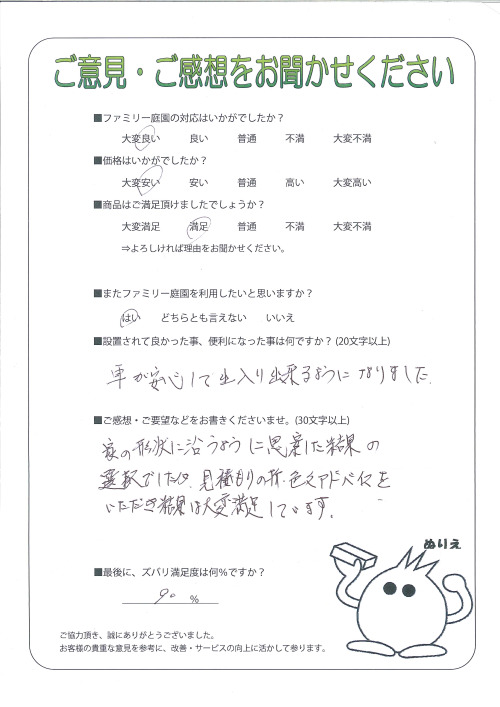 ご意見・ご感想をお聞かせください
■ファミリー庭園の対応はいかがでしたか？
大変良い 良い 普通 不満 大変不満
■価格はいかがでしたか？
大変安い 安い 普通 高い 大変高い
■商品はご満足頂けましたでしょうか？
大変満足 満足 普通 不満 大変不満
⇒よろしければ理由をお聞かせください。
■またファミリー庭園を利用したいと思いますか？
はい どちらとも言えない いいえ
■設置されて良かった事、便利になった事は何ですか？(20文字以上)
車が安心して出入り出来るようになりました.
■ご感想・ご要望などをお書きくださいませ。(30文字以上)
家の形状に沿うように思案した結果の
選択でしたが、見積もりの折、色々アドバイスを
いただき結果は大変満足しています。
ぬりえ
■最後に、ズバリ満足度は何％ですか？
90 ％
ご協力頂き、誠にありがとうございました。
お客様の貴重な意見を参考に、改善・サービスの向上に活かして参ります。